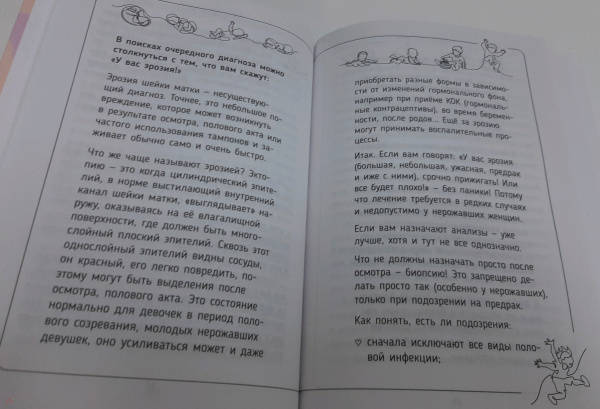 В поисках очередного диагноза можно
столкнуться с тем, что вам скажут:
«У вас эрозия!»
Эрозия шейки матки – несуществую-
щий диагноз. Точнее, это небольшое по-
вреждение, которое может возникнуть
в результате осмотра, полового акта или
частого использования тампонов и за-
живает обычно само и очень быстро.
Что же чаще называют эрозией? Экто-
пию – это когда цилиндрический эпите-
лий, в норме выстилающий внутренний
канал шейки матки, «выглядывает» на-
ружу, оказываясь на её влагалищной
поверхности, где должен быть много-
слойный плоский эпителий. Сквозь этот
однослойный эпителий видны сосуды,
он красный, его легко повредить, по-
этому могут быть выделения после
осмотра, полового акта. Это состояние
нормально для девочек в период поло-
вого созревания, молодых нерожавших
девушек, оно усиливаться может и даже
приобретать разные формы в зависимо-
сти от изменений гормонального фона,
например при приёме КОК (гормональ-
ные контрацептивы), во время беремен-
ности, после родов... Ещё за эрозию
могут принимать воспалительные про-
цессы.
Итак. Если вам говорят: «У вас эрозия
(большая, небольшая, ужасная, предрак
и иже с ними), срочно прижигать! Или
все будет плохо!» – без паники! Потому
что лечение требуется в редких случаях
и недопустимо у нерожавших женщин.
Если вам назначают анализы – уже
лучше, хотя и тут не все однозначно.
Что не должны назначать просто после
осмотра – биопсию! Это запрещено де-
лать просто так (особенно у нерожавших),
только при подозрении на предрак.
Как понять, есть ли подозрения:
♡ сначала исключают все виды поло-
вой инфекции;